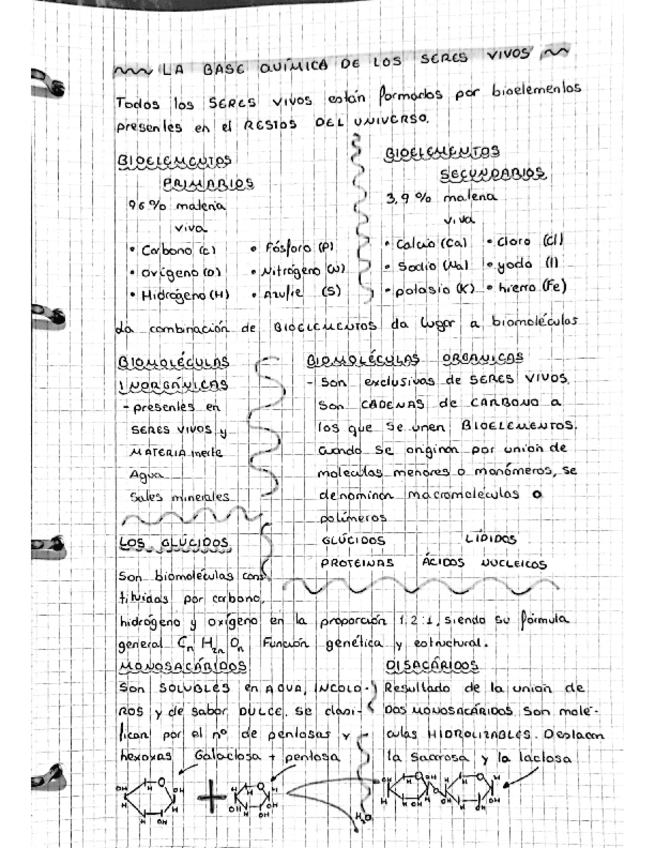 LA BASE QUÍMICA DE LOS SERES VIVOS
Todos los SERES VIVOS están formados por bioelementos
presentes en el RESTOS DEL UNIVERSO.
BIOELEMENTOS
PRIMARIOS
96% materia
viva
• Carbono (C) • Fósforo (P)
• Oxígeno (O) • Nitrógeno (N)
• Hidrógeno (H) • Azufre (S)
BIOELEMENTOS
SECUNDARIOS
3,9% materia
viva
• Calcio (Ca) • Cloro (Cl)
• Sodio (Na) • yodo (I)
• potasio (K) • hierro (Fe)
La combinación de BIOELEMENTOS da lugar a biomoléculas
BIOMOLÉCULAS
INORGÁNICAS
- presentes en
SERES VIVOS y
MATERIA inerte
Agua
Sales minerales
BIOMOLÉCULAS ORGANICAS
- Son exclusivas de SERES VIVOS.
Son CADENAS de CARBONO a
los que se unen BIOELEMENTOS.
Cuando se originan por union de
moleculas menores o monómeros, se
denominan macromoleculas o
polímeros
GLÚCIDOS LÍPIDOS
PROTEINAS ÁCIDOS NUCLEICOS
LOS GLÚCIDOS
Son biomoléculas cons
tituidas por carbono,
hidrógeno y oxígeno en la proporción 1:2:1, siendo su fórmula
general Cn H2n On Función genética y estructural.
MONOSACÁRIDOS
Son SOLUBLES en AGUA, INCOLO-
ROS y de sabor DULCE. Se clasi-
fican por el nº de pentosas y
hexoxas Galactosa + pentosa
DISACÁRIDOS
Resultado de la union de
DOS MONOSACÁRIDOS. Son molé-
culas HIDROLIZABLES. Destacan
la Sacarosa y la lactosa
H2O